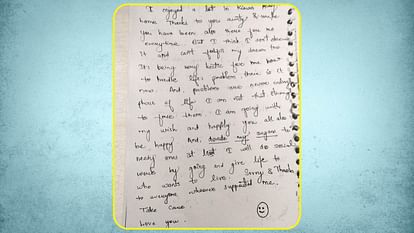 I enjoyed a lot in
home. Thanks to you aunty & uncle
You have been also there for me
everytime. But I think I don't deserve
it and can't fulfil my dream too.
It's being very hectic for me now
to handle life's problem, there is
now. And problems are never ending
phase of life. I am not that strong
to face them. I am going with
my wish and happily you all also
be happy. And, donate my organs to
needy ones at last I will do social
work by going and give life to
who wants to live. Sorry & Thanks
to everyone whoever supported me.
Take Care
Love you.